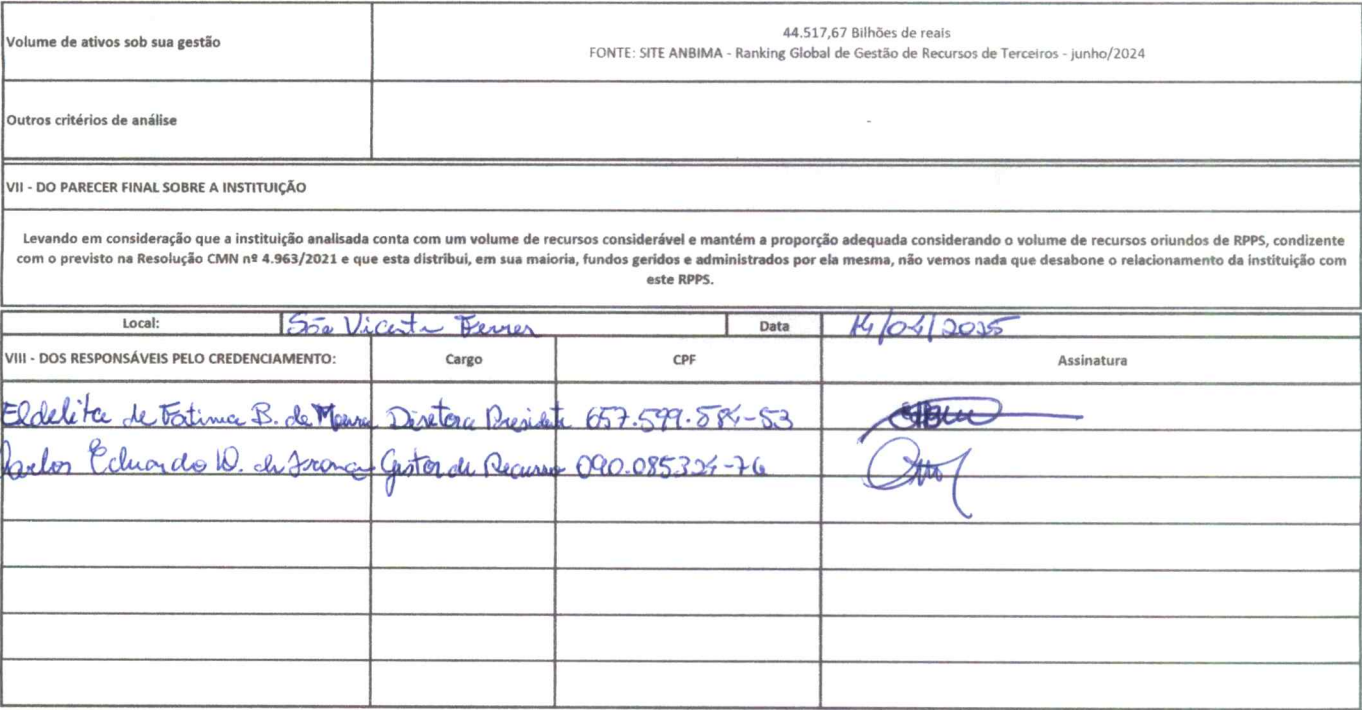 Volume de ativos sob sua gestão
44.517,67 Bilhões de reais
FONTE: SITE ANBIMA - Ranking Global de Gestão de Recursos de Terceiros - junho/2024
Outros critérios de análise
-
VII - DO PARECER FINAL SOBRE A INSTITUIÇÃO
Levando em consideração que a instituição analisada conta com um volume de recursos considerável e mantém a proporção adequada considerando o volume de recursos oriundos de RPPS, condizente
com o previsto na Resolução CMN nº 4.963/2021 e que esta distribui, em sua maioria, fundos geridos e administrados por ela mesma, não vemos nada que desabone o relacionamento da instituição com
este RPPS.
Local: São Vicente Ferrer Data 14/04/2025
VIII - DOS RESPONSÁVEIS PELO CREDENCIAMENTO: Cargo CPF Assinatura
Eldelita de Fatima B. de Moura Diretora Presidente 657.599.584-53
Carlos Eduardo de França Gestor de Recurso 090.085324-76